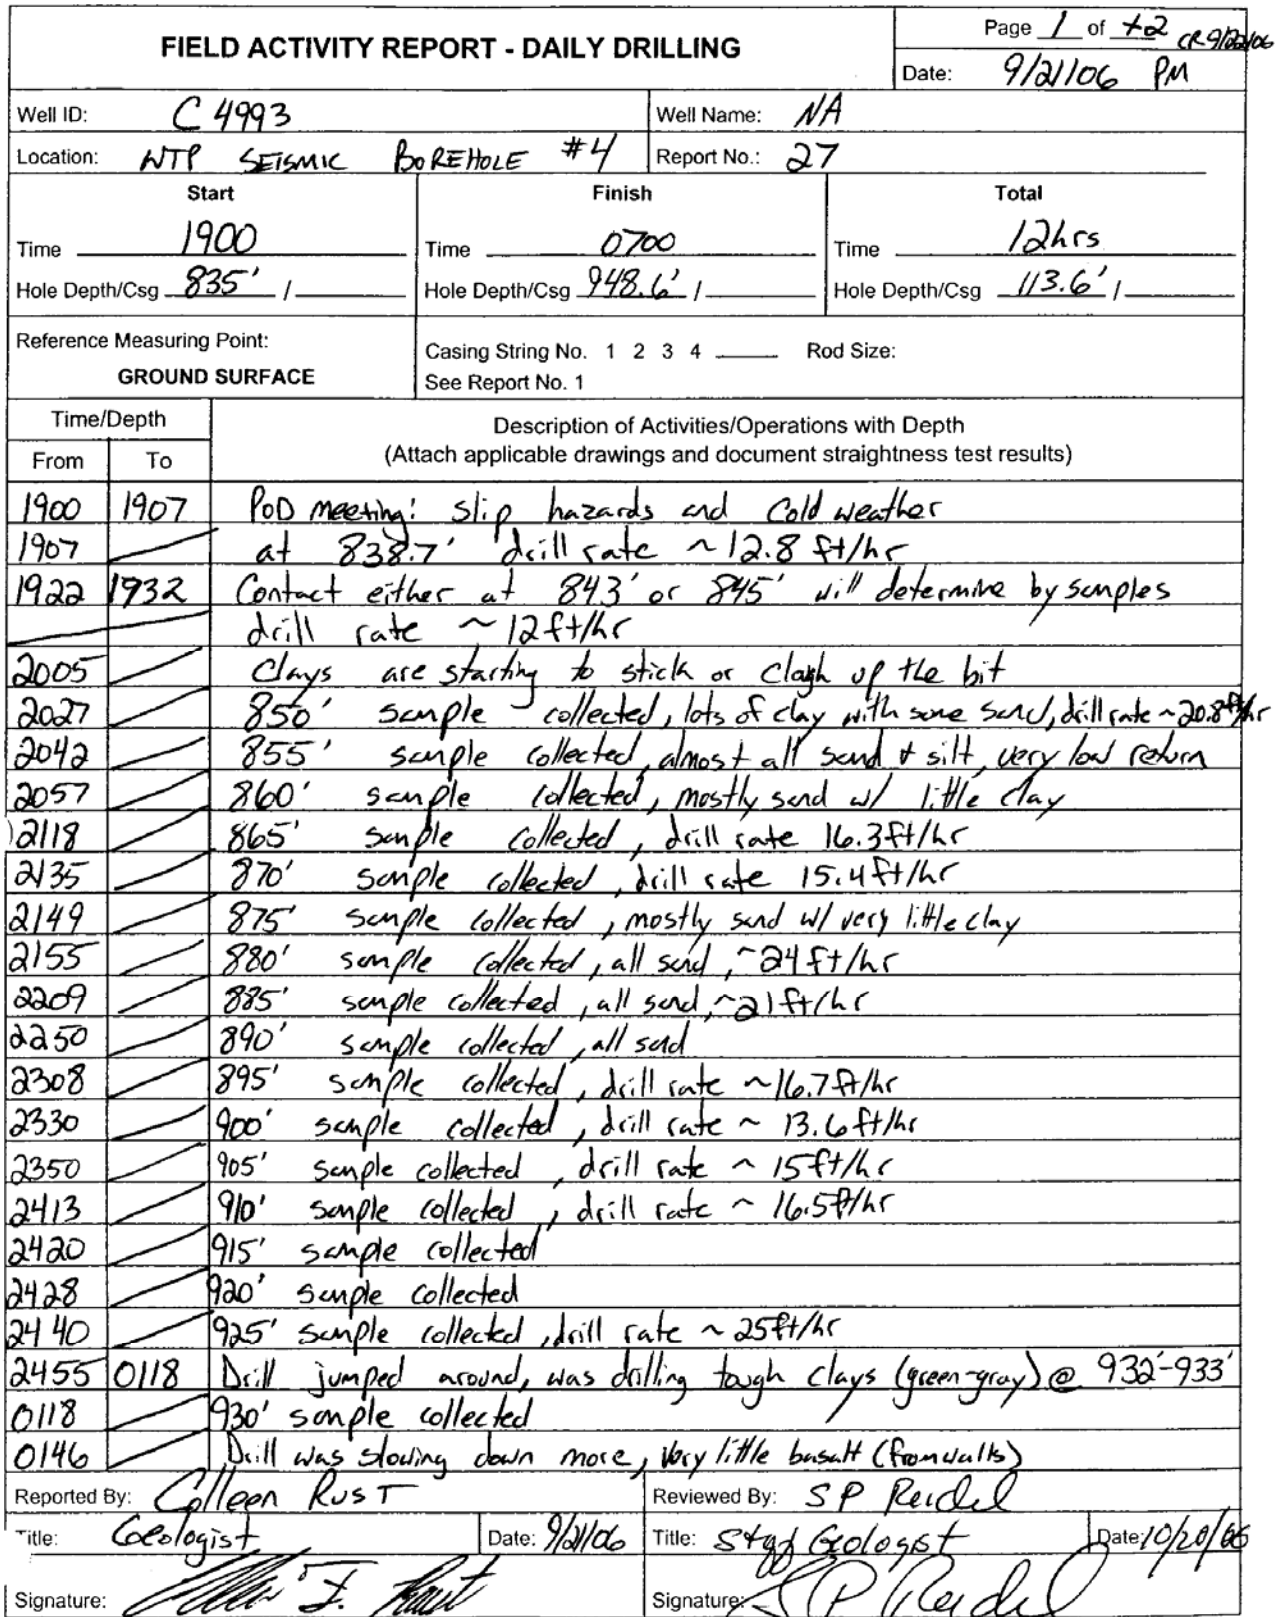 FIELD ACTIVITY REPORT - DAILY DRILLING
Page 1 of 2 CR 9/22/06
Date: 9/21/06 PM
Well ID: C 4993
Well Name: NA
Location: WTP SEISMIC BOREHOLE #4
Report No.: 27
Start Finish Total
Time 1900 Time 0700 Time 12hrs
Hole Depth/Csg 835' / Hole Depth/Csg 948.6' / Hole Depth/Csg 113.6' /
Reference Measuring Point:
GROUND SURFACE
Casing String No. 1 2 3 4 Rod Size:
See Report No. 1
Time/Depth
From To
Description of Activities/Operations with Depth
(Attach applicable drawings and document straightness test results)
1900 1907 POD meeting: slip hazards and cold weather
1907 at 838.7' drill rate ~12.8 ft/hr
1922 1932 Contact either at 843' or 845' will determine by samples
drill rate ~ 12ft/hr
2005 Clays are starting to stick or clogh up the bit
2027 850' sample collected, lots of clay with some sand, drill rate ~20.8ft/hr
2042 855' sample collected, almost all sand + silt, very low return
2057 860' sample collected, mostly sand w/ little clay
2118 865' sample collected, drill rate 16.3ft/hr
2135 870' sample collected, drill rate 15.4ft/hr
2149 875' sample collected, mostly sand w/ very little clay
2155 880' sample collected, all sand, ~24ft/hr
2209 885' sample collected, all sand, ~21ft/hr
2250 890' sample collected, all sand
2308 895' sample collected, drill rate ~16.7ft/hr
2330 900' sample collected, drill rate ~ 13.6ft/hr
2350 905' sample collected, drill rate ~ 15ft/hr
2413 910' sample collected, drill rate ~ 16.5ft/hr
2420 915' sample collected
2428 920' sample collected
2440 925' sample collected, drill rate ~ 25ft/hr
2455 0118 Drill jumped around, was drilling tough clays (green-gray) @ 932'-933'
0118 930' sample collected
0146 Drill was slowing down more, very little basalt (from walls)
Reported By: Colleen RUST
Reviewed By: SP Reidel
Title: Geologist Date: 9/21/06
Title: Staff Geologist Date: 10/20/06
Signature:
Signature: SP Reidel